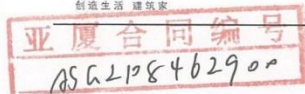 创造生活 建筑家
亚厦合同编号
ASG21P8462900